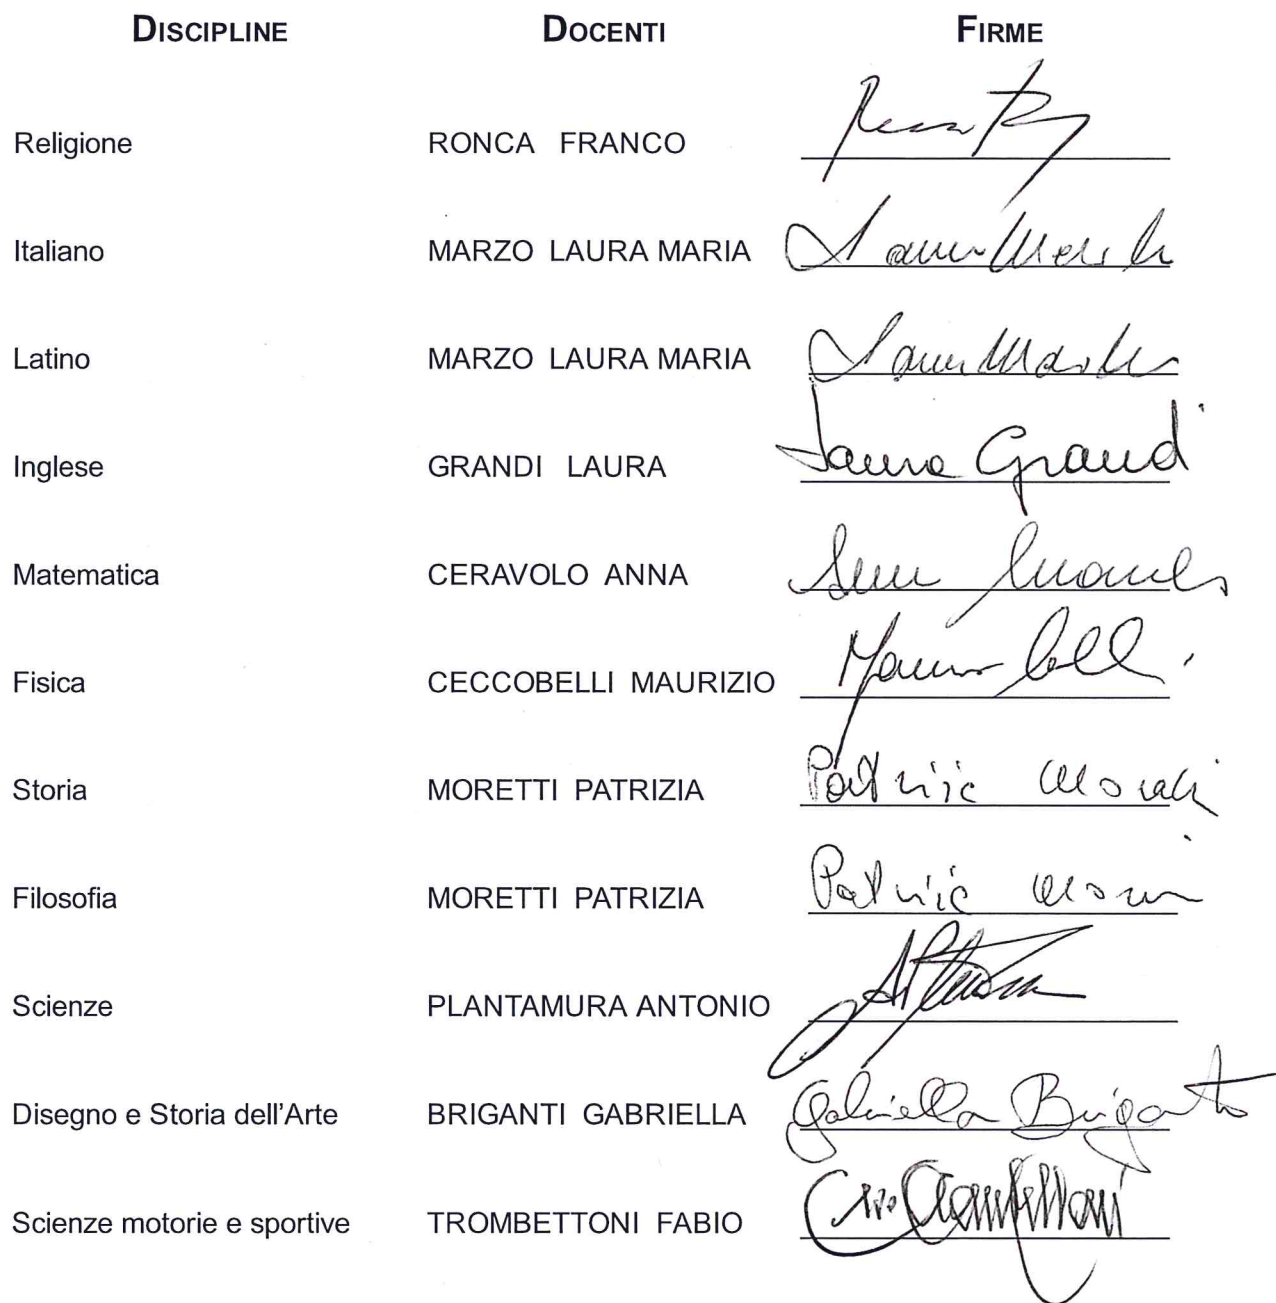 DISCIPLINE DOCENTI FIRME
Religione RONCA FRANCO
Italiano MARZO LAURA MARIA
Latino MARZO LAURA MARIA
Inglese GRANDI LAURA Laura Grandi
Matematica CERAVOLO ANNA
Fisica CECCOBELLI MAURIZIO
Storia MORETTI PATRIZIA Patrizia
Filosofia MORETTI PATRIZIA Patrizia
Scienze PLANTAMURA ANTONIO
Disegno e Storia dell'Arte BRIGANTI GABRIELLA Gabriella Briganti
Scienze motorie e sportive TROMBETTONI FABIO